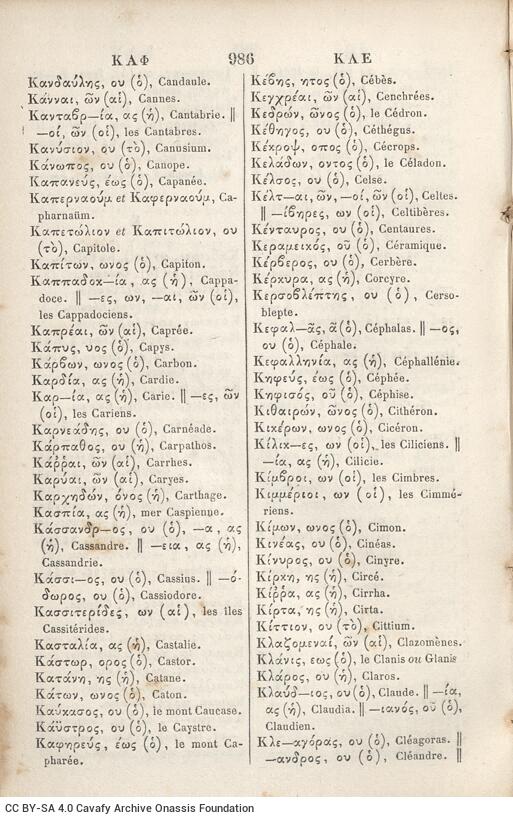 ΚΑΦ 986 ΚΛΕ
Κανδαύλης, ου (ὁ), Candaule.
Κάνναι, ῶν (αἱ), Cannes.
Κανταβρ—ία, ας (ἡ), Cantabrie. ||
—οι, ων (οἱ), les Cantabres.
Κανύσιον, ου (τὸ), Canusium.
Κάνωπος, ου (ὁ), Canope.
Καπανεύς, έως (ὁ), Capanée.
Καπερναούμ et Καφερναούμ, Ca-
pharnaüm.
Καπετώλιον et Καπιτώλιον, ου
(τὸ), Capitole.
Καπίτων, ωνος (ὁ), Capiton.
Καππαδοκ—ία, ας (ἡ), Cappa-
doce. || —ες, ων, —αι, ῶν (οἱ),
les Cappadociens.
Καπρέαι, ῶν (αἱ), Caprée.
Κάπυς, υος (ὁ), Capys.
Κάρβων, ωνος (ὁ), Carbon.
Καρδία, ας (ἡ), Cardie.
Καρ—ία, ας (ἡ), Carie. || —ες, ῶν
(οἱ), les Cariens.
Καρνεάδης, ου (ὁ), Carnéade.
Κάρπαθος, ου (ἡ), Carpathos.
Κάῤῥαι, ῶν (αἱ), Carrhes.
Καρύαι, ῶν (αἱ), Caryes.
Καρχηδών, όνος (ἡ), Carthage.
Κασπία, ας (ἡ), mer Caspienne.
Κάσσανδρ—ος, ου (ὁ), —α, ας
(ἡ), Cassandre. || —εια, ας (ἡ),
Cassandrie.
Κάσσι—ος, ου (ὁ), Cassius. || —ό-
δωρος, ου (ὁ), Cassiodore.
Κασσιτερίδες, ων (αἱ), les îles
Cassitérides.
Κασταλία, ας (ἡ), Castalie.
Κάστωρ, ορος (ὁ), Castor.
Κατάνη, ης (ἡ), Catane.
Κάτων, ωνος (ὁ), Caton.
Καύκασος, ου (ὁ), le mont Caucase.
Κάϋστρος, ου (ὁ), le Caystre.
Καφηρεύς, έως (ὁ), le mont Ca-
pharée.
Κέβης, ητος (ὁ), Cébès.
Κεγχρέαι, ῶν (αἱ), Cenchrées.
Κεδρών, ῶνος (ὁ), le Cédron.
Κέθηγος, ου (ὁ), Céthégus.
Κέκροψ, οπος (ὁ), Cécrops.
Κελάδων, οντος (ὁ), le Céladon.
Κέλσος, ου (ὁ), Celse.
Κέλτ—αι, ῶν, —οί, ῶν (οἱ), Celtes.
|| —ίβηρες, ων (οἱ), Celtibères.
Κένταυρος, ου (ὁ), Centaures.
Κεραμεικός, οῦ (ὁ), Céramique.
Κέρβερος, ου (ὁ), Cerbère.
Κέρκυρα, ας (ἡ), Corcyre.
Κερσοβλέπτης, ου (ὁ), Cerso-
blepte.
Κεφαλ—ᾶς, ᾶ (ὁ), Céphalas. || —ος,
ου (ὁ), Céphale.
Κεφαλληνία, ας (ἡ), Céphallénie.
Κηφεύς, έως (ὁ), Céphée.
Κηφισός, οῦ (ὁ), Céphise.
Κιθαιρών, ῶνος (ὁ), Cithéron.
Κικέρων, ωνος (ὁ), Cicéron.
Κίλικ—ες, ων (οἱ), les Ciliciens. ||
—ία, ας (ἡ), Cilicie.
Κίμβροι, ων (οἱ), les Cimbres.
Κιμμέριοι, ων (οἱ), les Cimmé-
riens.
Κίμων, ωνος (ὁ), Cimon.
Κινέας, ου (ὁ), Cinéas.
Κίνυρος, ου (ὁ), Cinyre.
Κίρκη, ης (ἡ), Circé.
Κίῤῥα, ας (ἡ), Cirrha.
Κίρτα, ης (ἡ), Cirta.
Κίττιον, ου (τὸ), Cittium.
Κλαζομεναί, ῶν (αἱ), Clazomènes.
Κλάνις, εως (ὁ), le Clanis ou Glanis
Κλάρος, ου (ἡ), Claros.
Κλαύδ—ιος, ου (ὁ), Claude. || —ία,
ας (ἡ), Claudia. || —ιανός, οῦ (ὁ),
Claudien.
Κλε—αγόρας, ου (ὁ), Cléagoras. ||
—ανδρος, ου (ὁ), Cléandre. ||
CC BY-SA 4.0 Cavafy Archive Onassis Foundation